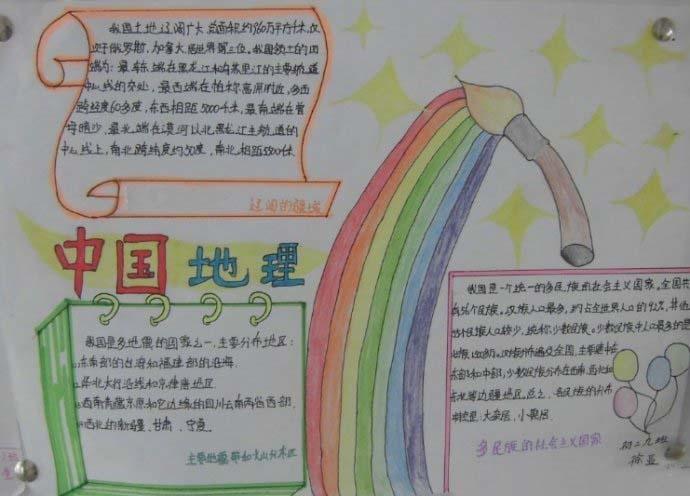 我国土地辽阔广大,总面积约960万平方千米,仅
次于俄罗斯、加拿大,居世界第三位。我国领土的四
端为:最东端在黑龙江和乌苏里江的主航道
中心线的交处,最西端在帕米尔高原附近,东西
跨经度60多度,东西相距5000千米,最南端在曾
母暗沙,最北端在漠河以北黑龙江主航道的
中心线上,南北跨纬度约50度,南北相距5500千米
辽阔的疆域
中国地理
我国是多地震的国家之一,主要分布地区:
东南部的台湾和福建部的沿海
华北太行沿线和京津唐地区
西南青藏高原和它边缘的四川云南两省西部
西北的新疆、甘肃、宁夏。
主要地震带和火山分布区
我国是一个统一的多民族的社会主义国家。全国共
有56个民族。汉族人口最多,约占全世界人口的92%,其他
55个民族人口较少,统称少数民族。少数民族中人口最多的是
壮族,汉族分布遍及全国,主要集中在
东部和中部,少数民族分布在西南、西北和
东北等边疆地区。总之,各民族的分布
特点是:大杂居、小聚居。
多民族的社会主义国家
初二九班
徐亚